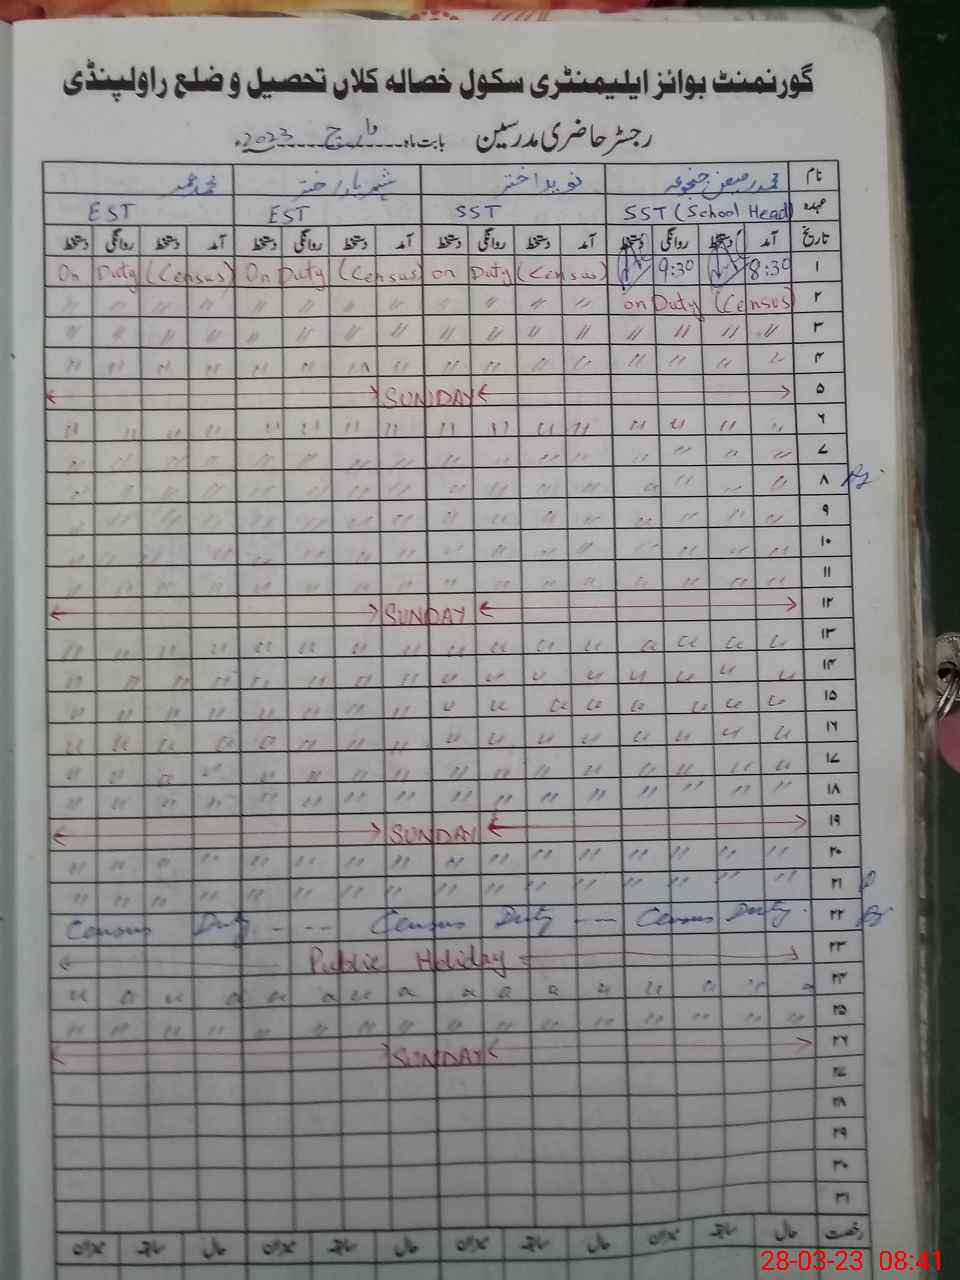 گورنمنٹ بوائز ایلیمنٹری سکول خصالہ کلاں تحصیل و ضلع راولپنڈی
رجسٹر حاضری مدرسین بابت ماہ مارچ 2023ء
نام نوید اختر محمد عمر
عہدہ SST (School Head) SST EST EST
تاریخ آمد دستخط روانگی دستخط آمد دستخط روانگی دستخط آمد دستخط روانگی دستخط آمد دستخط روانگی دستخط
۱ 8:30 9:30 on Duty (Census) On Duty (Census) On Duty (Census)
۲ on Duty (Census) 〃 〃 〃 〃 〃 〃 〃 〃 〃 〃 〃 〃
۳ 〃 〃 〃 〃 〃 〃 〃 〃 〃 〃 〃 〃 〃 〃 〃 〃
۴ 〃 〃 〃 〃 〃 〃 〃 〃 〃 〃 〃 〃 〃 〃 〃 〃
۵ SUNDAY
۶ 〃 〃 〃 〃 〃 〃 〃 〃 〃 〃 〃 〃 〃 〃 〃 〃
۷ 〃 〃 〃 〃 〃 〃 〃 〃 〃 〃 〃 〃 〃 〃 〃 〃
۸ 〃 〃 〃 〃 〃 〃 〃 〃 〃 〃 〃 〃 〃 〃 〃 〃
۹ 〃 〃 〃 〃 〃 〃 〃 〃 〃 〃 〃 〃 〃 〃 〃 〃
۱۰ 〃 〃 〃 〃 〃 〃 〃 〃 〃 〃 〃 〃 〃 〃 〃 〃
۱۱ 〃 〃 〃 〃 〃 〃 〃 〃 〃 〃 〃 〃 〃 〃 〃 〃
۱۲ SUNDAY
۱۳ 〃 〃 〃 〃 〃 〃 〃 〃 〃 〃 〃 〃 〃 〃 〃 〃
۱۴ 〃 〃 〃 〃 〃 〃 〃 〃 〃 〃 〃 〃 〃 〃 〃 〃
۱۵ 〃 〃 〃 〃 〃 〃 〃 〃 〃 〃 〃 〃 〃 〃 〃 〃
۱۶ 〃 〃 〃 〃 〃 〃 〃 〃 〃 〃 〃 〃 〃 〃 〃 〃
۱۷ 〃 〃 〃 〃 〃 〃 〃 〃 〃 〃 〃 〃 〃 〃 〃 〃
۱۸ 〃 〃 〃 〃 〃 〃 〃 〃 〃 〃 〃 〃 〃 〃 〃 〃
۱۹ SUNDAY
۲۰ 〃 〃 〃 〃 〃 〃 〃 〃 〃 〃 〃 〃 〃 〃 〃 〃
۲۱ 〃 〃 〃 〃 〃 〃 〃 〃 〃 〃 〃 〃 〃 〃 〃 〃
۲۲ Census Duty - - - Census Duty - - - Census Duty
۲۳ Public Holiday
۲۴ 〃 〃 〃 〃 〃 〃 〃 〃 〃 〃 〃 〃 〃 〃 〃 〃
۲۵ 〃 〃 〃 〃 〃 〃 〃 〃 〃 〃 〃 〃 〃 〃 〃 〃
۲۶ SUNDAY
۲۷
۲۸
۲۹
۳۰
۳۱
رخصت حال سابقہ میزان حال سابقہ میزان حال سابقہ میزان حال سابقہ میزان
28-03-23 08:41